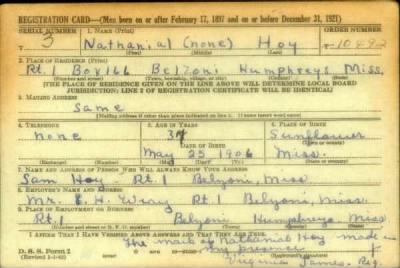 REGISTRATION CARD—(Men born on or after February 17, 1897 and on or before December 31, 1921)
SERIAL NUMBER 1. NAME (Print) ORDER NUMBER
3 Nathanial (none) Hoy 10492
2. PLACE OF RESIDENCE (Print)
Rt. 1 Box 166 Belzoni Humphreys Miss.
(Number and street) (Town, township, village, or city) (County) (State)
[THE PLACE OF RESIDENCE GIVEN ON THE LINE ABOVE WILL DETERMINE LOCAL BOARD
JURISDICTION; LINE 2 OF REGISTRATION CERTIFICATE WILL BE IDENTICAL]
3. MAILING ADDRESS
Same
[Mailing address if other than place indicated on line 2. If same insert word same]
4. TELEPHONE 5. AGE IN YEARS 6. PLACE OF BIRTH
none Sunflower
DATE OF BIRTH
May 25 1906 Miss.
7. NAME AND ADDRESS OF PERSON WHO WILL ALWAYS KNOW YOUR ADDRESS
Sam Hoy Rt. 1 Belzoni, Miss
8. EMPLOYER'S NAME AND ADDRESS
Mr. Rt 1 Belzoni, Miss.
9. PLACE OF EMPLOYMENT OR BUSINESS
Rt. 1 Belzoni Humphreys Miss
I AFFIRM THAT I HAVE VERIFIED ABOVE ANSWERS AND THAT THEY ARE TRUE.
The mark of Nathanial Hoy made in
my presence X
D. S. S. Form 1
(Revised 1-1-42)
Virginia James. Reg.